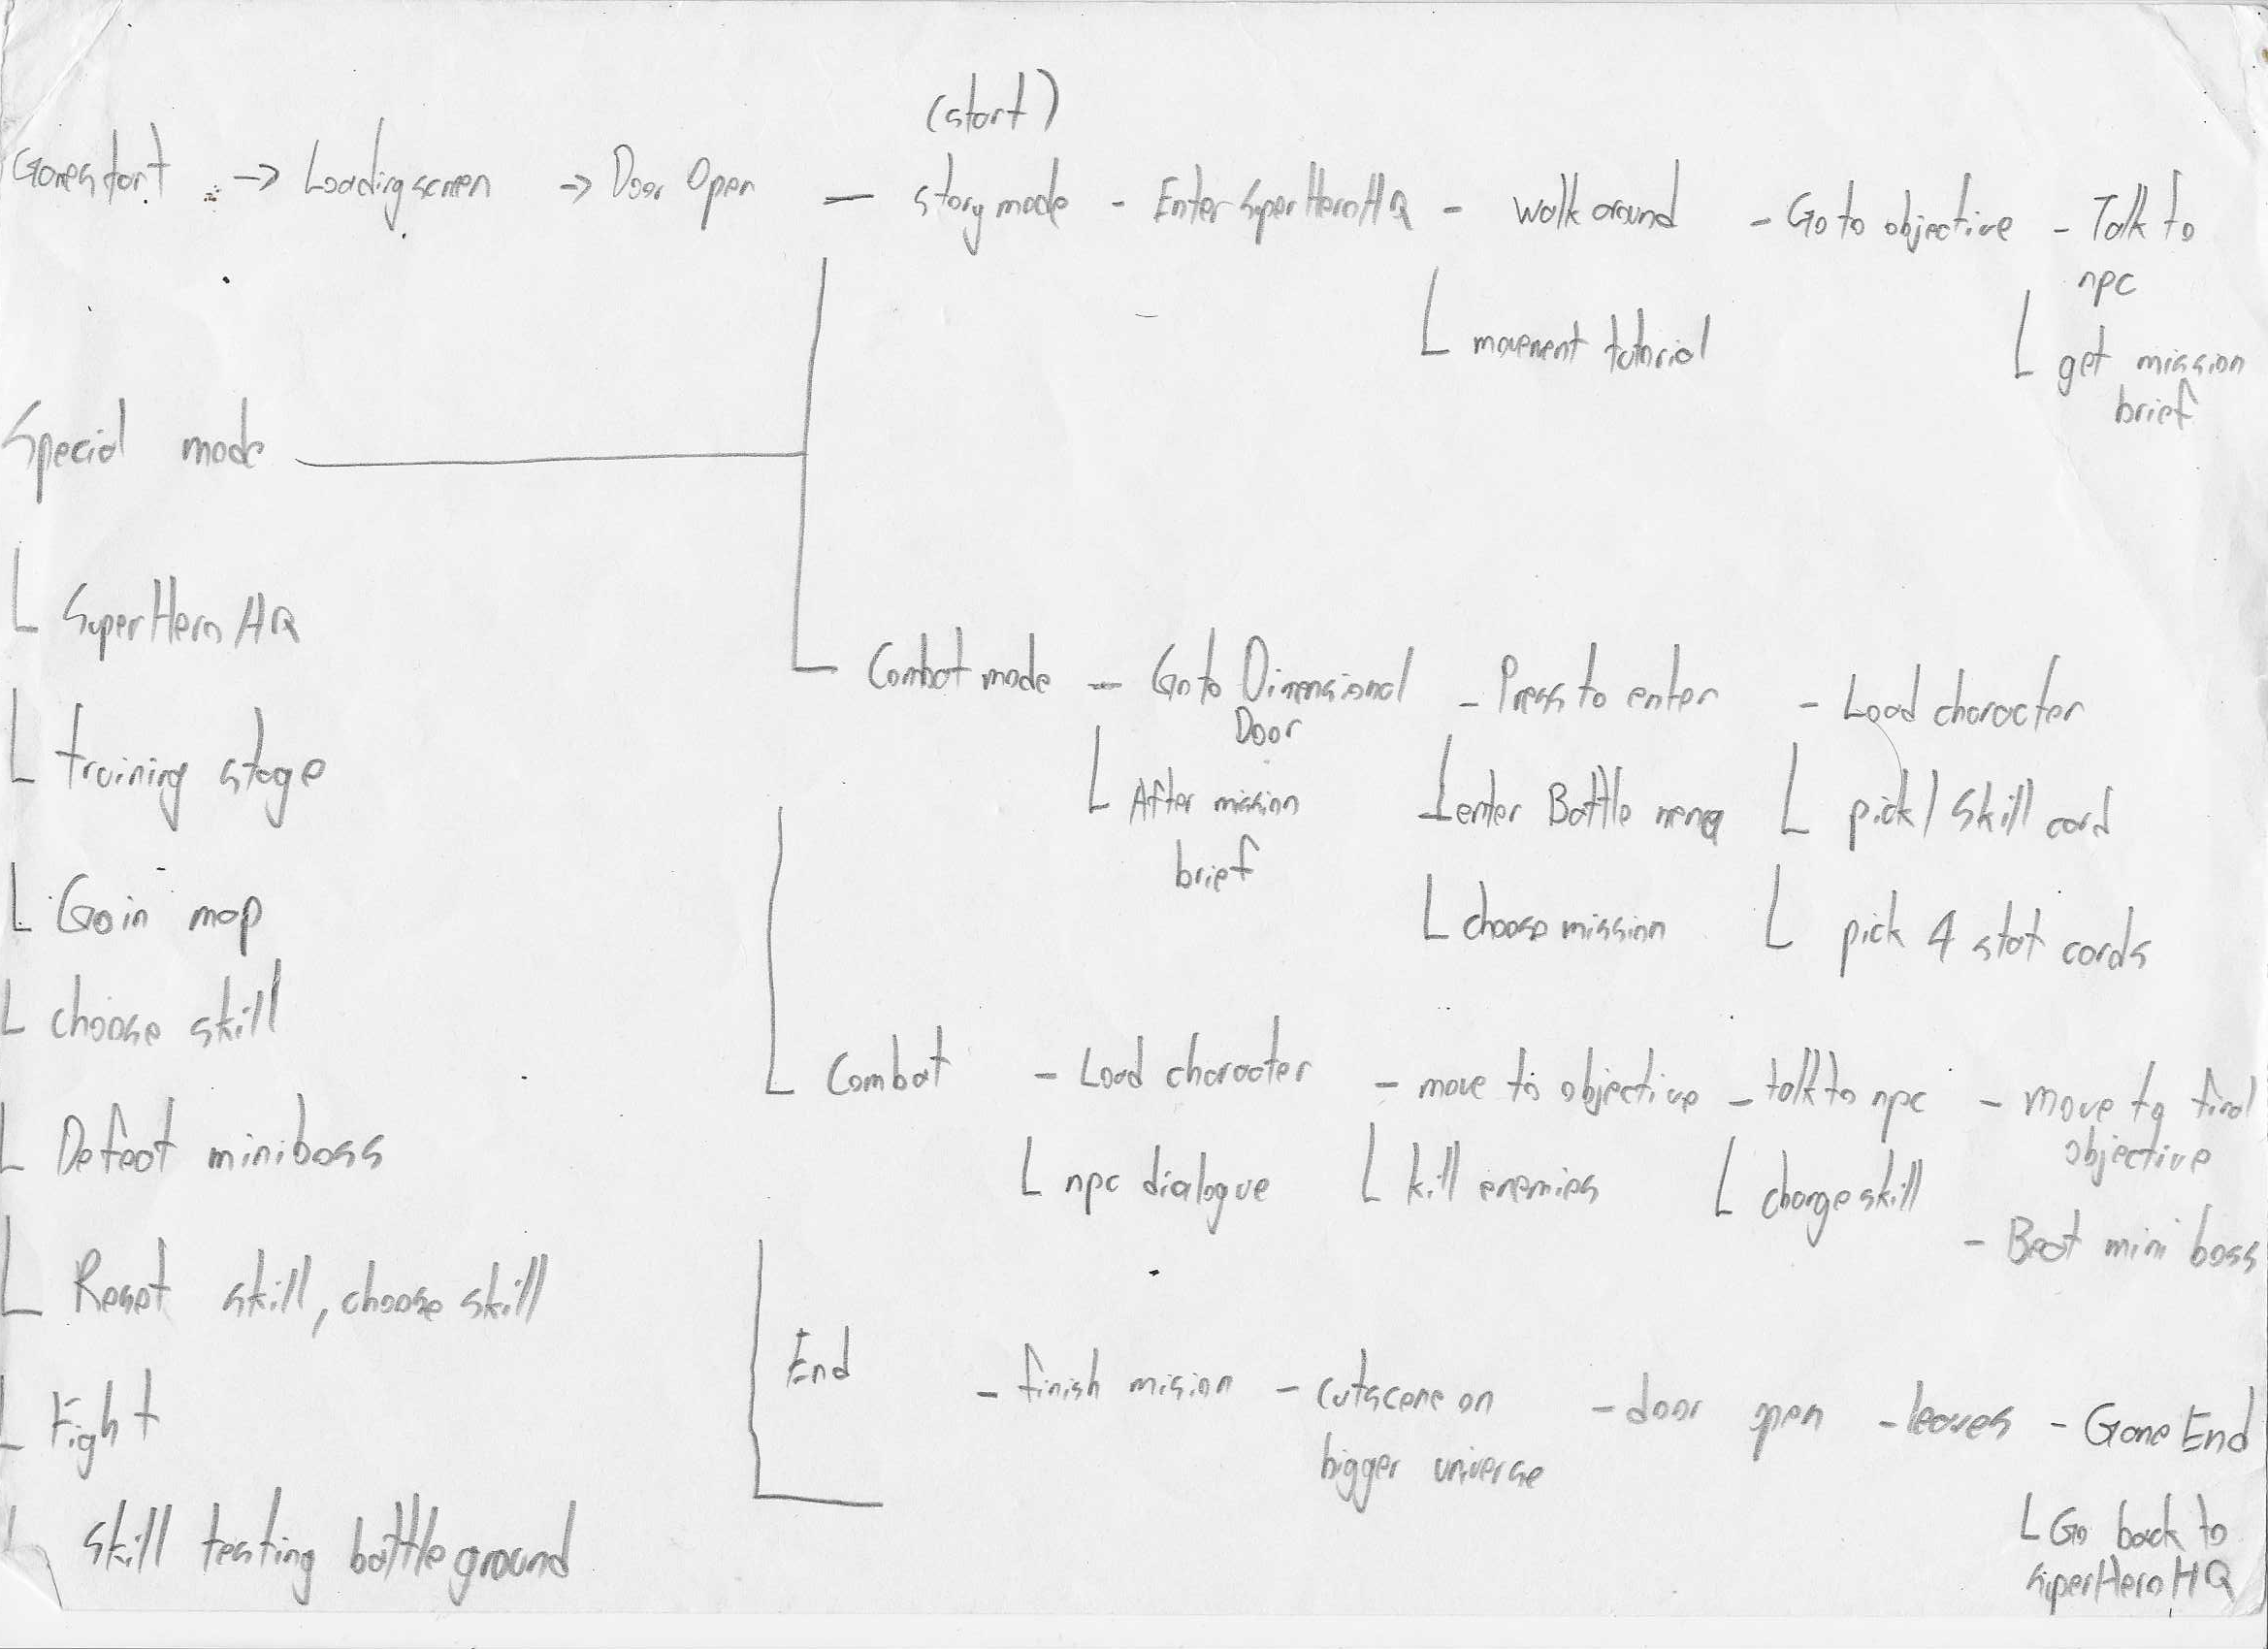 (start)
Gamestart -> Loadingscreen -> Door Open — story mode - Enter SuperHeroHQ - walk around - Go to objective - Talk to
npc
L movement tutorial L get mission
brief
Special mode
L SuperHero HQ
L training stage
L Go in map
L choose skill
L Defeat miniboss
L Reset skill, choose skill
L Fight
L skill testing battleground
Combat mode - Go to Dimensional - Press to enter - Load character
Door
L After mission L enter Battle menu L pick 1 skill card
brief
L choose mission L pick 4 stat cards
Combat - Load character - move to objective - talk to npc - move to final
objective
L npc dialogue L kill enemies L change skill
- Beat mini boss
End - finish mision - cutscene on - door open - leaves - Game End
bigger universe
L Go back to
SuperHeroHQ